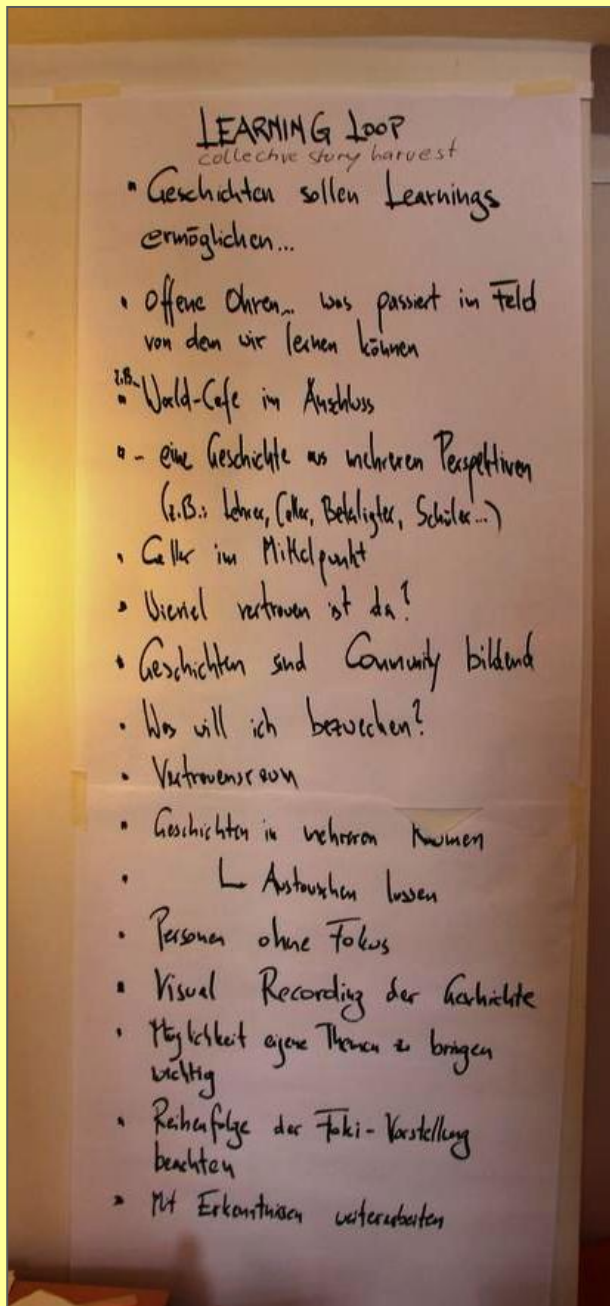 LEARNING LOOP
collective story harvest
• Geschichten sollen Learnings
ermöglichen...
• Offene Ohren... was passiert im Feld
von dem wir lernen können
z.B.
• World-Cafe im Anschluss
• - eine Geschichte aus mehreren Perspektiven
(z.B.: Lehrer, Caller, Beteiligter, Schüler...)
• Caller im Mittelpunkt
• Wieviel vertrauen ist da?
• Geschichten sind Community bildend
• Was will ich bezwecken?
• Vertrauensraum
• Geschichten in mehreren Räumen
• ↳ Austauschen lassen
• Personen ohne Fokus
• Visual Recording der Geschichte
• Möglichkeit eigene Themen zu bringen
wichtig
• Reihenfolge der Foki-Vorstellung
beachten
• Mit Erkenntnissen weiterarbeiten